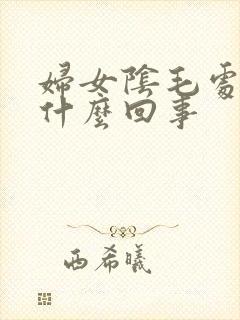 婦女陰毛處
什麼回事
西希曦